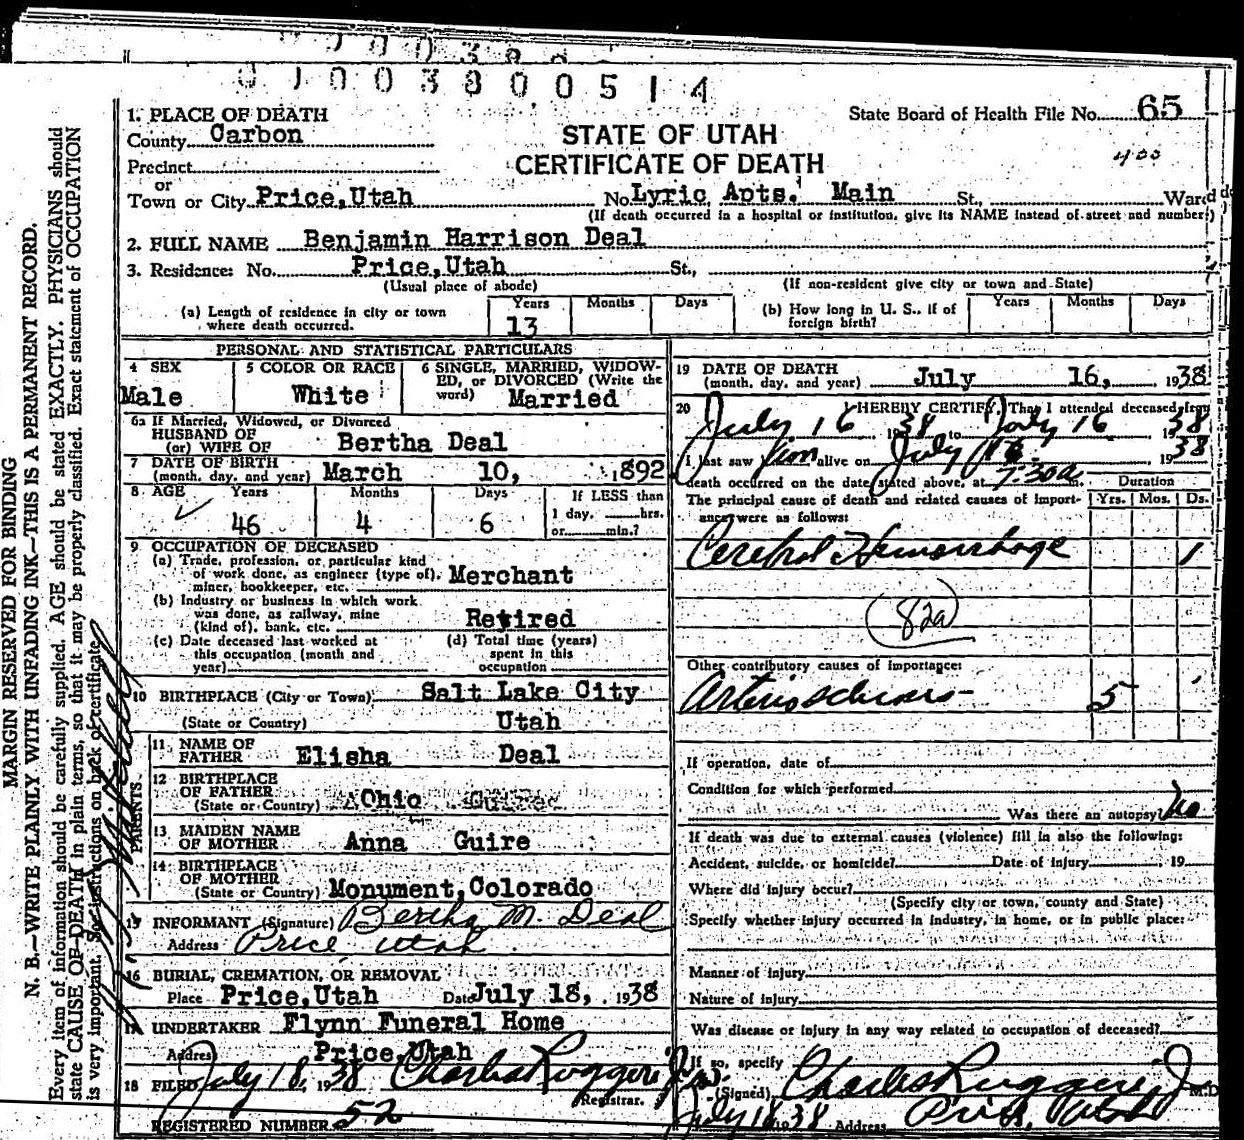 0 1 0 0 3 8 0 0 5 1 4
1. PLACE OF DEATH
State Board of Health File No. 65
County Carbon
STATE OF UTAH
400
Precinct
CERTIFICATE OF DEATH
or
Town or City Price, Utah No. Lyric Apts. Main St., Ward
(If death occurred in a hospital or institution, give its NAME instead of street and number.)
2. FULL NAME Benjamin Harrison Deal
3. Residence: No. Price, Utah St.,
(Usual place of abode) (If non-resident give city or town and State)
(a) Length of residence in city or town where death occurred. Years 13 Months Days
(b) How long in U. S., if of foreign birth? Years Months Days
PERSONAL AND STATISTICAL PARTICULARS
4 SEX Male
5 COLOR OR RACE White
6 SINGLE, MARRIED, WIDOWED, or DIVORCED (Write the word) Married
6a If Married, Widowed, or Divorced
HUSBAND OF
(or) WIFE OF Bertha Deal
7 DATE OF BIRTH
(month, day, and year) March 10, 1892
8 AGE Years 46 Months 4 Days 6
If LESS than
1 day, hrs.
or min.?
9 OCCUPATION OF DECEASED
(a) Trade, profession, or particular kind
of work done, as engineer (type of), Merchant
miner, bookkeeper, etc.
(b) Industry or business in which work
was done, as railway, mine Retired
(kind of), bank, etc.
(c) Date deceased last worked at
this occupation (month and
year)
(d) Total time (years)
spent in this
occupation
10 BIRTHPLACE (City or Town) Salt Lake City
(State or Country) Utah
PARENTS
11 NAME OF
FATHER Elisha Deal
12 BIRTHPLACE
OF FATHER
(State or Country) Ohio
13 MAIDEN NAME
OF MOTHER Anna Guire
14 BIRTHPLACE
OF MOTHER
(State or Country) Monument, Colorado
15 INFORMANT (Signature) Bertha M. Deal
Address Price Utah
16 BURIAL, CREMATION, OR REMOVAL
Place Price, Utah Date July 18, 1938
17 UNDERTAKER Flynn Funeral Home
Address Price, Utah
18 FILED July 18, 1938 Charles Ruggeri Jr.
Registrar.
REGISTERED NUMBER 52
19 DATE OF DEATH
(month, day, and year) July 16, 1938
20 I HEREBY CERTIFY, That I attended deceased from
July 16 1938 to July 16 1938
I last saw him alive on July 16 1938
death occurred on the date stated above, at 7:30 a m.
Duration
The principal cause of death and related causes of importance were as follows:
Yrs. Mos. Ds.
Cerebral Hemorrhage 1
82a
Other contributory causes of importance:
Arteriosclerosis 5
If operation, date of
Condition for which performed
Was there an autopsy? No
If death was due to external causes (violence) fill in also the following:
Accident, suicide, or homicide? Date of injury 19
Where did injury occur?
(Specify city or town, county and State)
Specify whether injury occurred in industry, in home, or in public place:
Manner of injury
Nature of injury
Was disease or injury in any way related to occupation of deceased?
If so, specify
(Signed) Charles Ruggeri Jr M.D.
July 18 1938 Address Price, Utah
MARGIN RESERVED FOR BINDING
N. B.—WRITE PLAINLY WITH UNFADING INK—THIS IS A PERMANENT RECORD.
Every item of information should be carefully supplied. AGE should be stated EXACTLY. PHYSICIANS should
state CAUSE OF DEATH in plain terms, so that it may be properly classified. Exact statement of OCCUPATION
is very important. See instructions on back of certificate.